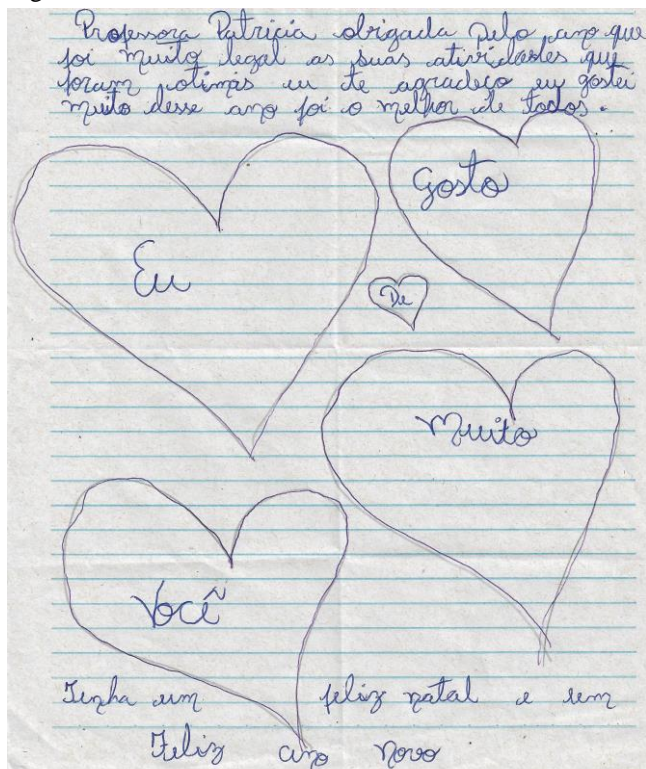 Professora Patricia obrigada pelo ano que
foi muito legal as suas atividades que
foram otimas eu te agradeço eu gostei
muito desse ano foi o melhor de todos.
Eu
Gosto
De
Muito
Você
Tenha um feliz natal e um
Feliz ano novo